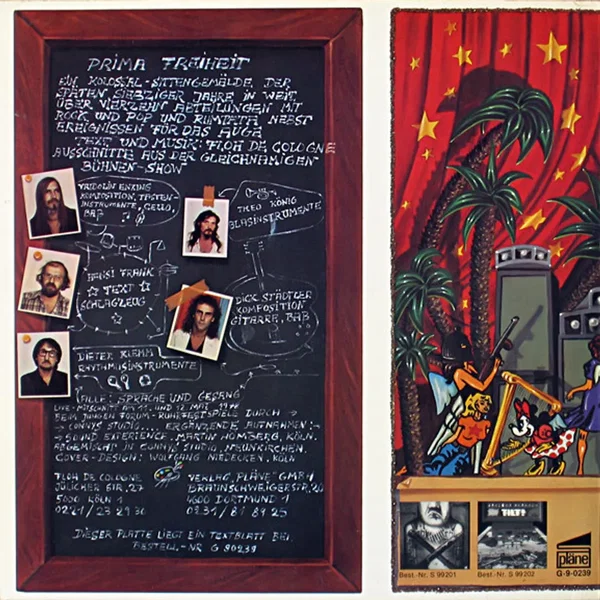 PRIMA FREIHEIT
EIN KOLOSSAL-SITTENGEMÄLDE DER
SPÄTEN SIEBZIGER JAHRE IN WEIT
ÜBER VIERZEHN ABTEILUNGEN MIT
ROCK UND POP UND RUMTATA NEBST
EREIGNISSEN FÜR DAS AUGE
TEXT UND MUSIK: FLOH DE COLOGNE
AUSSCHNITTE AUS DER GLEICHNAMIGEN
BÜHNEN-SHOW
FRIDOLIN ENXING
KOMPOSITION, TASTEN-
INSTRUMENTE, CELLO,
BAß
THEO KÖNIG
BLASINSTRUMENTE
HANSI FRANK
TEXT
SCHLAGZEUG
DICK STÄDTLER
KOMPOSITION
GITARRE, BAß
DIETER KLEMM
RHYTHMUSINSTRUMENTE
ALLE: SPRACHE UND GESANG
LIVE-MITSCHNITT AM 11. UND 12. MAI
BEIM JUNGEN FORUM-RUHRFESTSPIELE DURCH
CONNYS STUDIO ERGÄNZENDE AUFNAHMEN:
SOUND EXPERIENCE, MARTIN HÖMBERG, KÖLN.
ABGEMISCHT IN CONNYS STUDIO, NEUNKIRCHEN.
COVER-DESIGN: WOLFGANG NIEDECKEN, KÖLN
FLOH DE COLOGNE
JÜLICHER STR. 27
5000 KÖLN 1
0221/23 21 30
VERLAG "PLÄNE" GMBH
BRAUNSCHWEIGERSTR. 20
4600 DORTMUND 1
0231/81 89 25
DIESER PLATTE LIEGT EIN TEXTBLATT BEI
BESTELL.-NR G 90239
TILT!
Best.-Nr. S 99201
Best.-Nr. S 99202
pläne
G-9-0239